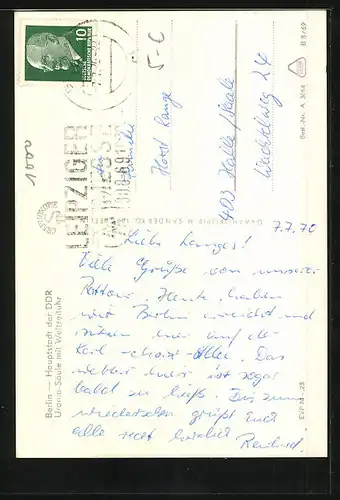 10
DEUTSCHE DEMOKRATISCHE REPUBLIK
LEIPZIGER
1000
5-E
B 8/69
Best.-Nr. A 3084
Familie
Horst Lange
403 Halle/Saale
Wachtelweg 24
7.7.70
Liebe Langes!
Viele Grüße von unserer
Heute haben
wir Berlin erreicht und
hier auf der
Karl-Marx-Allee. Das
Wetter hier ist sogar
bald zu heiß. Bis zum
wiedersehen grüßt Euch
alle recht herzlich
Reinhard!
Berlin — Hauptstadt der DDR
Urania-Säule mit Weltzeituhr
EVP M -,25